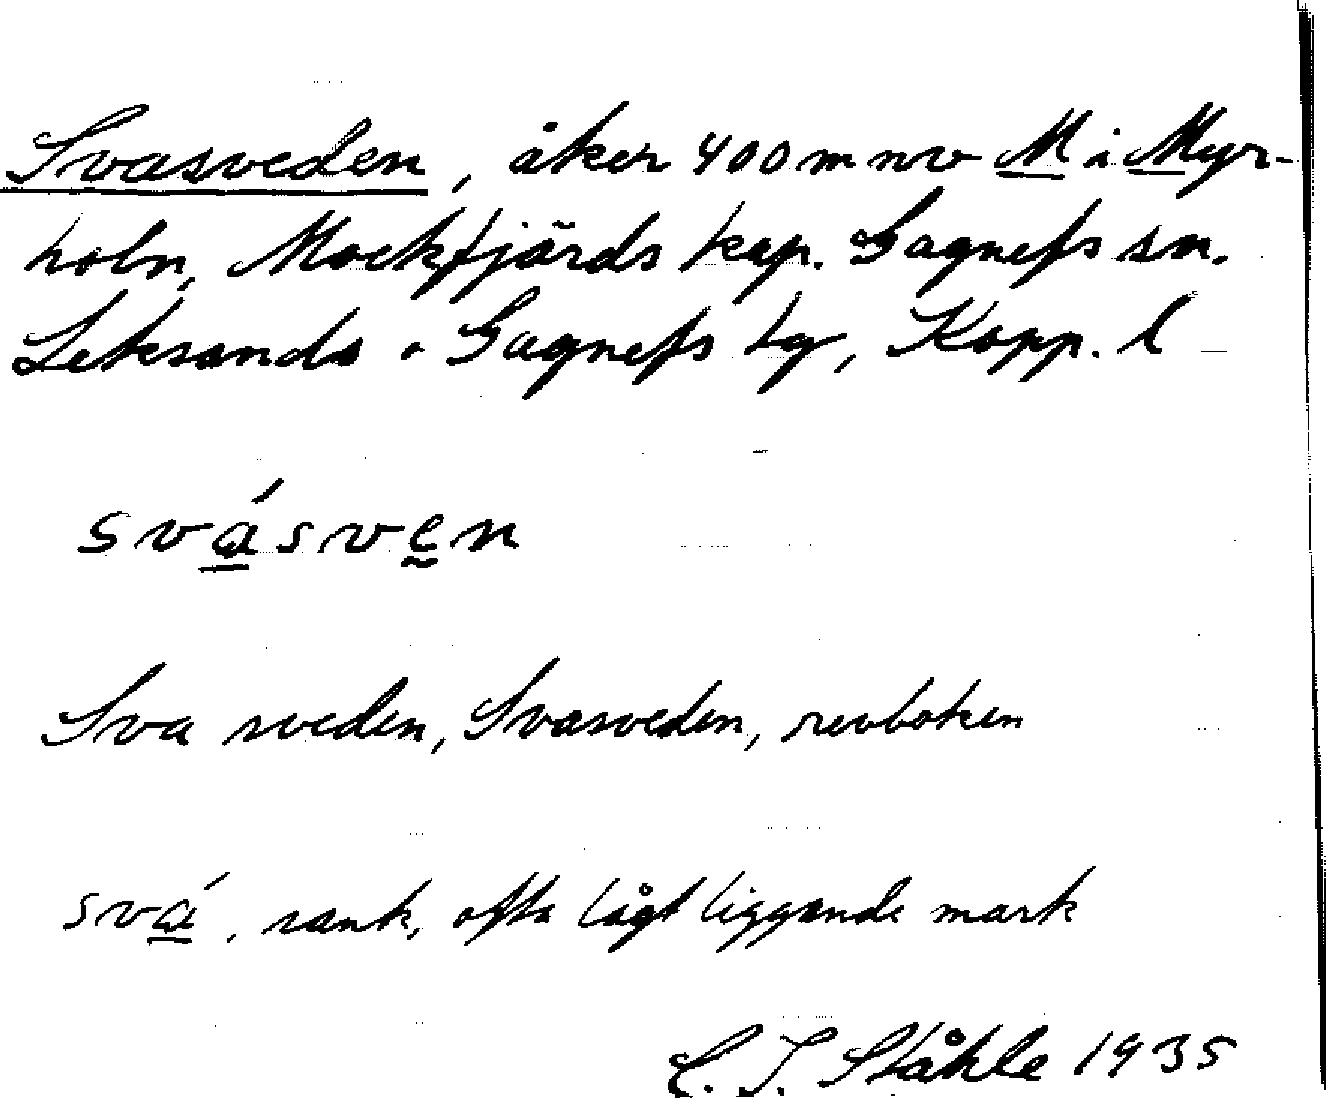 Svasveden, åker 400 m nv M i Myr-
holn, Mockfjärds kap. Gagnefs sn.
Leksands o Gagnefs tg, Kopp. l
svásven
Sva sveden, Svasveden, revboken
svá, sank, ofta lågt liggande mark
C. I. Ståhle 1935